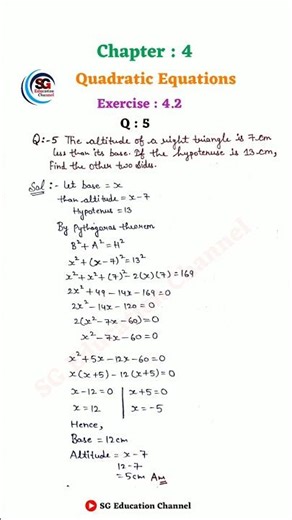 Chapter : 4
SG
Education
Channel
Quadratic Equations
Exercise : 4.2
Q : 5
Q:-5 The altitude of a right triangle is 7cm
less than its base. If the hypotenuse is 13 cm,
Find the other two sides.
Sol :- let base = x
than altitude = x-7
Hypotenus = 13
By Pythagoras theorem
B² + A² = H²
x² + (x-7)² = 13²
x² + x² + (7)² - 2(x)(7) = 169
2x² + 49 - 14x - 169 = 0
2x² - 14x - 120 = 0
2(x² - 7x - 60) = 0
x² - 7x - 60 = 0
x² + 5x - 12x - 60 = 0
x(x+5) - 12(x+5) = 0
x - 12 = 0 | x + 5 = 0
x = 12 | x = -5
Hence,
Base = 12cm
Altitude = x - 7
12 - 7
= 5cm Ans
SG Education Channel
SG Education Channel